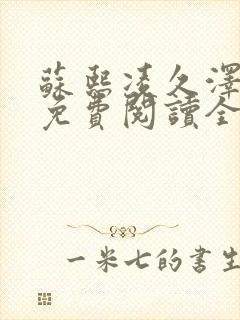 蘇熙凌久澤
免費閱讀全
一米七的書生